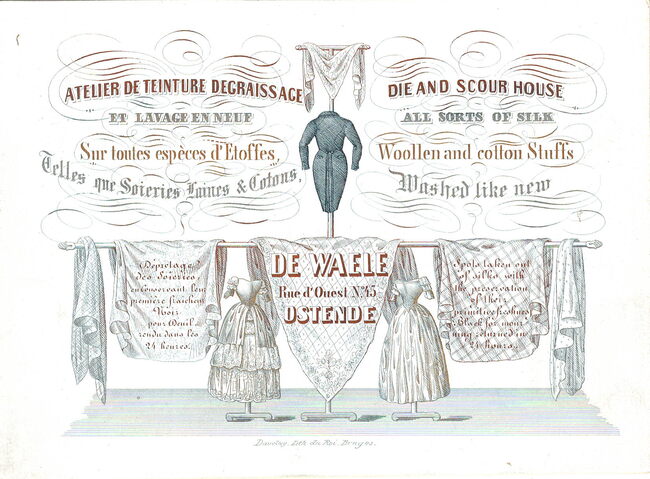 ATELIER DE TEINTURE DEGRAISSAGE
ET LAVAGE EN NEUF
Sur toutes espèces d'Etoffes,
Telles que Soieries Laines & Cotons,
DIE AND SCOUR HOUSE
ALL SORTS OF SILK
Woollen and cotton Stuffs
Washed like new
(Dépiotage)
des Soieries,
en Conservant leur
première fraicheur
Noir
pour Deuil
rendu dans les
24 heures.
DE WAELE
Rue d'Ouest N° 45
OSTENDE
Spots taken out
of silks with
the preservation
of their
primitive freshnes
Black for mour
ning returned in
24 hours.
Daveluy, Lith. du Roi, Bruges.